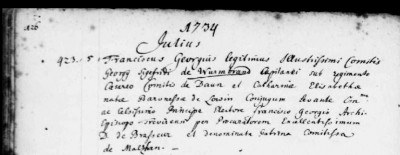 126
1734
Julius
423. 5. Franciscus Georgius legitimus Illustrissimi Comitis
Georgi Sigefridi de Wurmbrand Capitanei sub regimento
Caesareo Comitis de Daun et Catharinae Elisabetha
nata Baronessa de Conjugum levante
ac Celsissimo Principe Electore Francisco Georgio Archi-
Episcopo Trevirensi per Procuratorem Excellentissimum
D. de Brasseur et denominata Sabina Comitissa
de